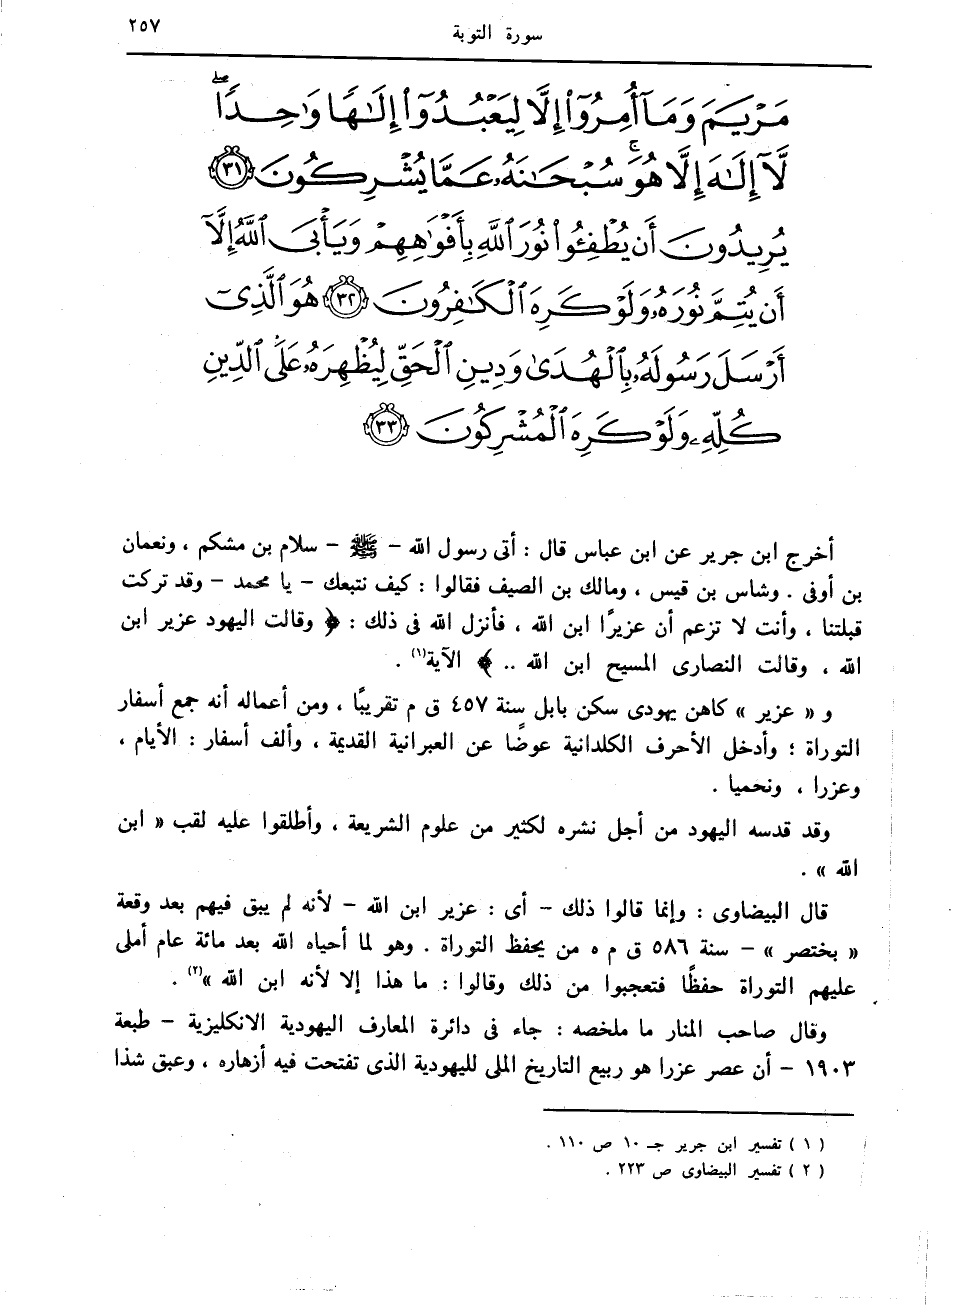 سورة التوبة
٢٥٧
مَرْيَمَ وَمَآ أُمِرُوٓا۟ إِلَّا لِيَعْبُدُوٓا۟ إِلَٰهًا وَٰحِدًا ۖ
لَّآ إِلَٰهَ إِلَّا هُوَ ۚ سُبْحَٰنَهُۥ عَمَّا يُشْرِكُونَ ٣١
يُرِيدُونَ أَن يُطْفِـُٔوا۟ نُورَ ٱللَّهِ بِأَفْوَٰهِهِمْ وَيَأْبَى ٱللَّهُ إِلَّآ
أَن يُتِمَّ نُورَهُۥ وَلَوْ كَرِهَ ٱلْكَٰفِرُونَ ٣٢ هُوَ ٱلَّذِىٓ
أَرْسَلَ رَسُولَهُۥ بِٱلْهُدَىٰ وَدِينِ ٱلْحَقِّ لِيُظْهِرَهُۥ عَلَى ٱلدِّينِ
كُلِّهِۦ وَلَوْ كَرِهَ ٱلْمُشْرِكُونَ ٣٣
أخرج ابن جرير عن ابن عباس قال : أتى رسول الله – ﷺ – سلام بن مشكم ، ونعمان
بن أوفى . وشاس بن قيس ، ومالك بن الصيف فقالوا : كيف نتبعك – يا محمد – وقد تركت
قبلتنا ، وأنت لا تزعم أن عزيرًا ابن الله ، فأنزل الله فى ذلك : ﴿ وقالت اليهود عزير ابن
الله ، وقالت النصارى المسيح ابن الله .. ﴾ الآية(١) .
و « عزير » كاهن يهودى سكن بابل سنة ٤٥٧ ق م تقريبًا ، ومن أعماله أنه جمع أسفار
التوراة ؛ وأدخل الأحرف الكلدانية عوضًا عن العبرانية القديمة ، وألف أسفار : الأيام ،
وعزرا ، ونحميا .
وقد قدسه اليهود من أجل نشره لكثير من علوم الشريعة ، وأطلقوا عليه لقب « ابن
الله » .
قال البيضاوى : وإنما قالوا ذلك – أى : عزير ابن الله – لأنه لم يبق فيهم بعد وقعة
« بختصر » – سنة ٥٨٦ ق م ه من يحفظ التوراة . وهو لما أحياه الله بعد مائة عام أملى
عليهم التوراة حفظًا فتعجبوا من ذلك وقالوا : ما هذا إلا لأنه ابن الله »(٢) .
وقال صاحب المنار ما ملخصه : جاء فى دائرة المعارف اليهودية الانكليزية – طبعة
١٩٠٣ – أن عصر عزرا هو ربيع التاريخ الملى لليهودية الذى تفتحت فيه أزهاره ، وعبق شذا
( ١ ) تفسير ابن جرير جـ ١٠ ص ١١٠ .
( ٢ ) تفسير البيضاوى ص ٢٢٣ .